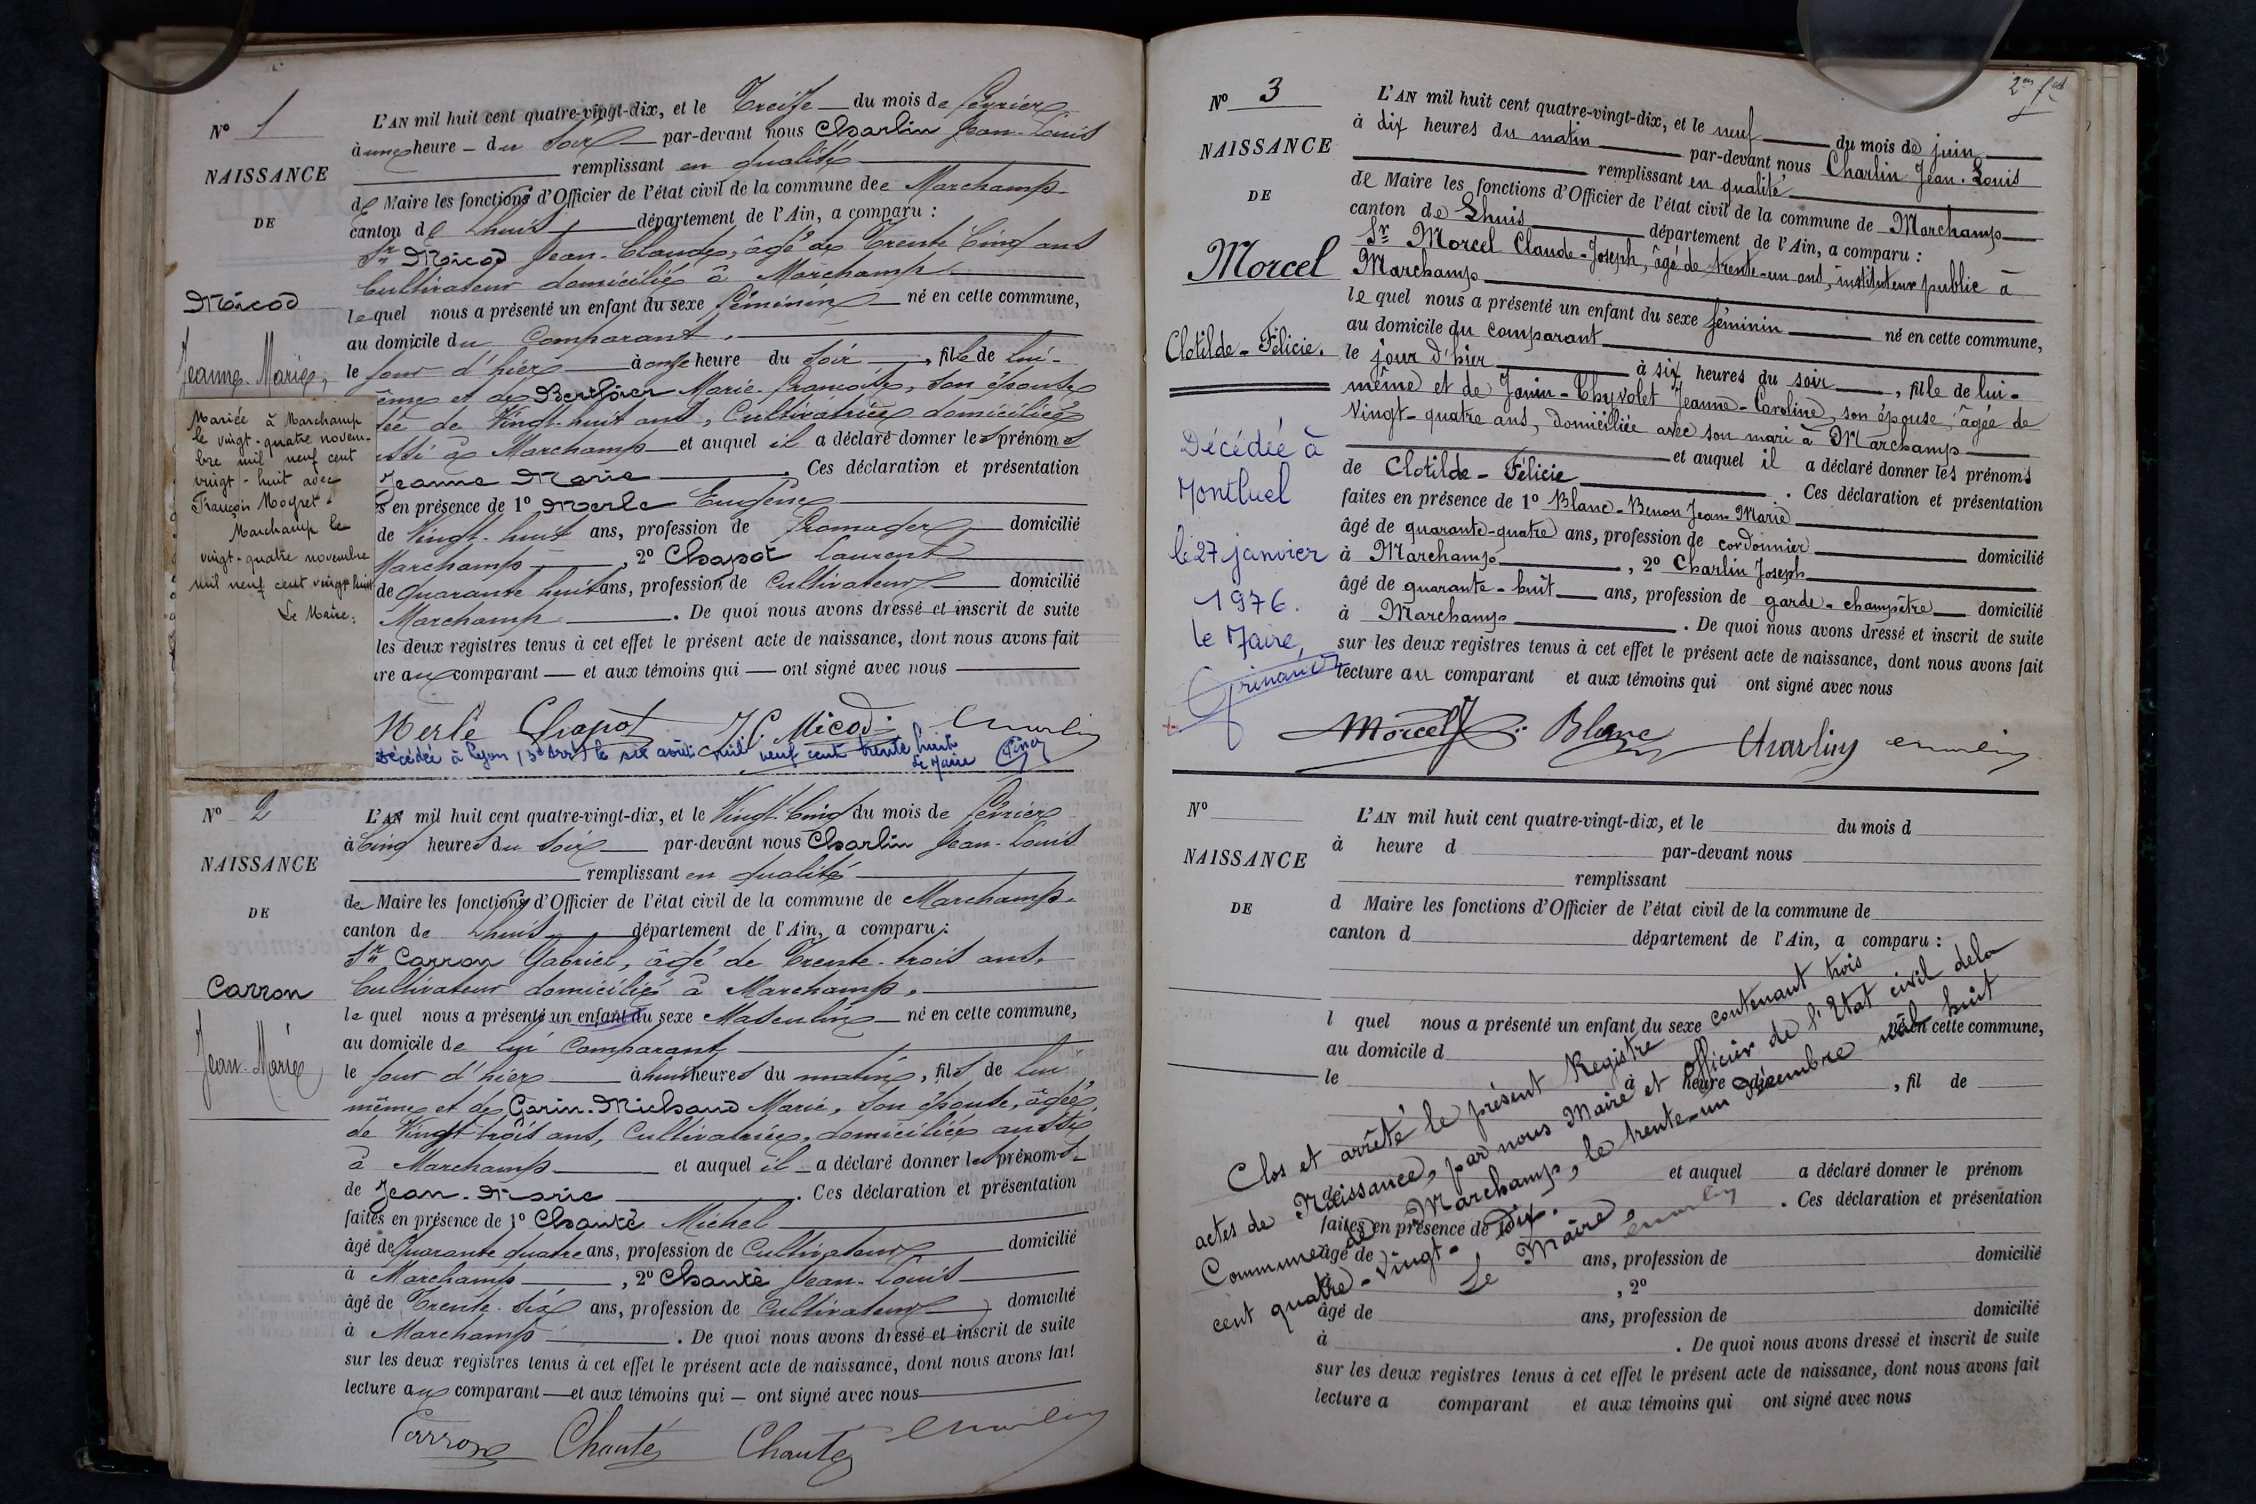 N° 1
NAISSANCE
DE
Micod
Jeanne-Marie,
Mariée à Marchamp
le vingt-quatre novem-
bre mil neuf cent
vingt-huit avec
François Mogret.
Marchamp le
vingt-quatre novembre
mil neuf cent vingt-huit
Le Maire:
L'AN mil huit cent quatre-vingt-dix, et le Treize du mois de février
à une heure du soir par-devant nous Charlin Jean-Louis
remplissant en qualité
de Maire les fonctions d'Officier de l'état civil de la commune dee Marchamp
canton de Lhuis département de l'Ain, a comparu :
Sr Micod Jean-Claude, âgé de Trente Cinq ans
Cultivateur domicilié à Marchamp
le quel nous a présenté un enfant du sexe féminin né en cette commune,
au domicile du Comparant.
le jour d'hier à onze heure du soir, fille de lui-
ême et de Berthier Marie-françoise, son épouse
ée de Vingt-huit ans, Cultivatrice domiciliée
ussi à Marchamp et auquel il a déclaré donner les prénoms
Jeanne Marie . Ces déclaration et présentation
s en présence de 1° Merle Eugène
de Vingt-huit ans, profession de fromager domicilié
Marchamp , 2° Chapot Laurent
de Quarante huit ans, profession de Cultivateur domicilié
Marchamp . De quoi nous avons dressé et inscrit de suite
les deux registres tenus à cet effet le présent acte de naissance, dont nous avons fait
re au comparant et aux témoins qui ont signé avec nous
Merle Chapot J.C. Micod Charlin
Décédée à Lyon (3e Arrt) le six août mil neuf cent trente huit
Le Maire
N° 2
NAISSANCE
DE
Carron
Jean-Marie
L'AN mil huit cent quatre-vingt-dix, et le Vingt-Cinq du mois de février
à Cinq heures du soir par-devant nous Charlin Jean-Louis
remplissant en qualité
de Maire les fonctions d'Officier de l'état civil de la commune de Marchamp.
canton de Lhuis département de l'Ain, a comparu :
Sr Carron Gabriel, âgé de Trente-trois ans,
Cultivateur domicilié à Marchamp.
le quel nous a présenté un enfant du sexe Masculin né en cette commune,
au domicile de lui Comparant
le jour d'hier à huit heures du matin, fils de lui
même et de Garin-Michaud Marie, son épouse, âgée
de Vingt trois ans, Cultivatrice, domiciliée aussi
à Marchamp et auquel il a déclaré donner les prénoms
de Jean-Marie . Ces déclaration et présentation
faites en présence de 1° Chanté Michel
âgé de Quarante quatre ans, profession de Cultivateur domicilié
à Marchamp , 2° Chanté Jean-Louis
âgé de Trente-Six ans, profession de Cultivateur domicilié
à Marchamp . De quoi nous avons dressé et inscrit de suite
sur les deux registres tenus à cet effet le présent acte de naissance, dont nous avons fait
lecture au comparant et aux témoins qui ont signé avec nous
Carron Chanté Chanté Charlin
2me fet
N° 3
NAISSANCE
DE
Morcel
Clotilde-Félicie.
Décédée à
Montluel
le 27 janvier
1976.
Le Maire,
L'AN mil huit cent quatre-vingt-dix, et le neuf du mois de juin
à dix heures du matin par-devant nous Charlin Jean-Louis
remplissant en qualité
de Maire les fonctions d'Officier de l'état civil de la commune de Marchamp
canton de Lhuis département de l'Ain, a comparu :
Sr Morcel Claude-Joseph, âgé de trente-un ans, instituteur public à
Marchamp
le quel nous a présenté un enfant du sexe féminin né en cette commune,
au domicile du comparant
le jour d'hier à six heures du soir, fille de lui-
même et de Janin-Thyvolet Jeanne-Caroline, son épouse, âgée de
vingt-quatre ans, domiciliée avec son mari à Marchamp
et auquel il a déclaré donner les prénoms
de Clotilde-Félicie . Ces déclaration et présentation
faites en présence de 1° Blanc-Benon Jean-Marie
âgé de quarante-quatre ans, profession de cordonnier domicilié
à Marchamp , 2° Charlin Joseph
âgé de quarante-huit ans, profession de garde-champêtre domicilié
à Marchamp . De quoi nous avons dressé et inscrit de suite
sur les deux registres tenus à cet effet le présent acte de naissance, dont nous avons fait
lecture au comparant et aux témoins qui ont signé avec nous
Morcel Blanc Charlin Charlin
N°
NAISSANCE
DE
L'AN mil huit cent quatre-vingt-dix, et le du mois d
à heure d par-devant nous
remplissant
d Maire les fonctions d'Officier de l'état civil de la commune de
canton d département de l'Ain, a comparu :
l quel nous a présenté un enfant du sexe né en cette commune,
au domicile d
le à heure d , fil de
et auquel a déclaré donner le prénom
de . Ces déclaration et présentation
faites en présence de 1°
âgé de ans, profession de domicilié
à , 2°
âgé de ans, profession de domicilié
à . De quoi nous avons dressé et inscrit de suite
sur les deux registres tenus à cet effet le présent acte de naissance, dont nous avons fait
lecture a comparant et aux témoins qui ont signé avec nous
Clos et arrêté le présent Registre contenant trois
actes de Naissance, par nous Maire et officier de l'Etat civil de la
Commune de Marchamp, le trente-un décembre mil huit
cent quatre-vingt-dix.
Le Maire,
Charlin